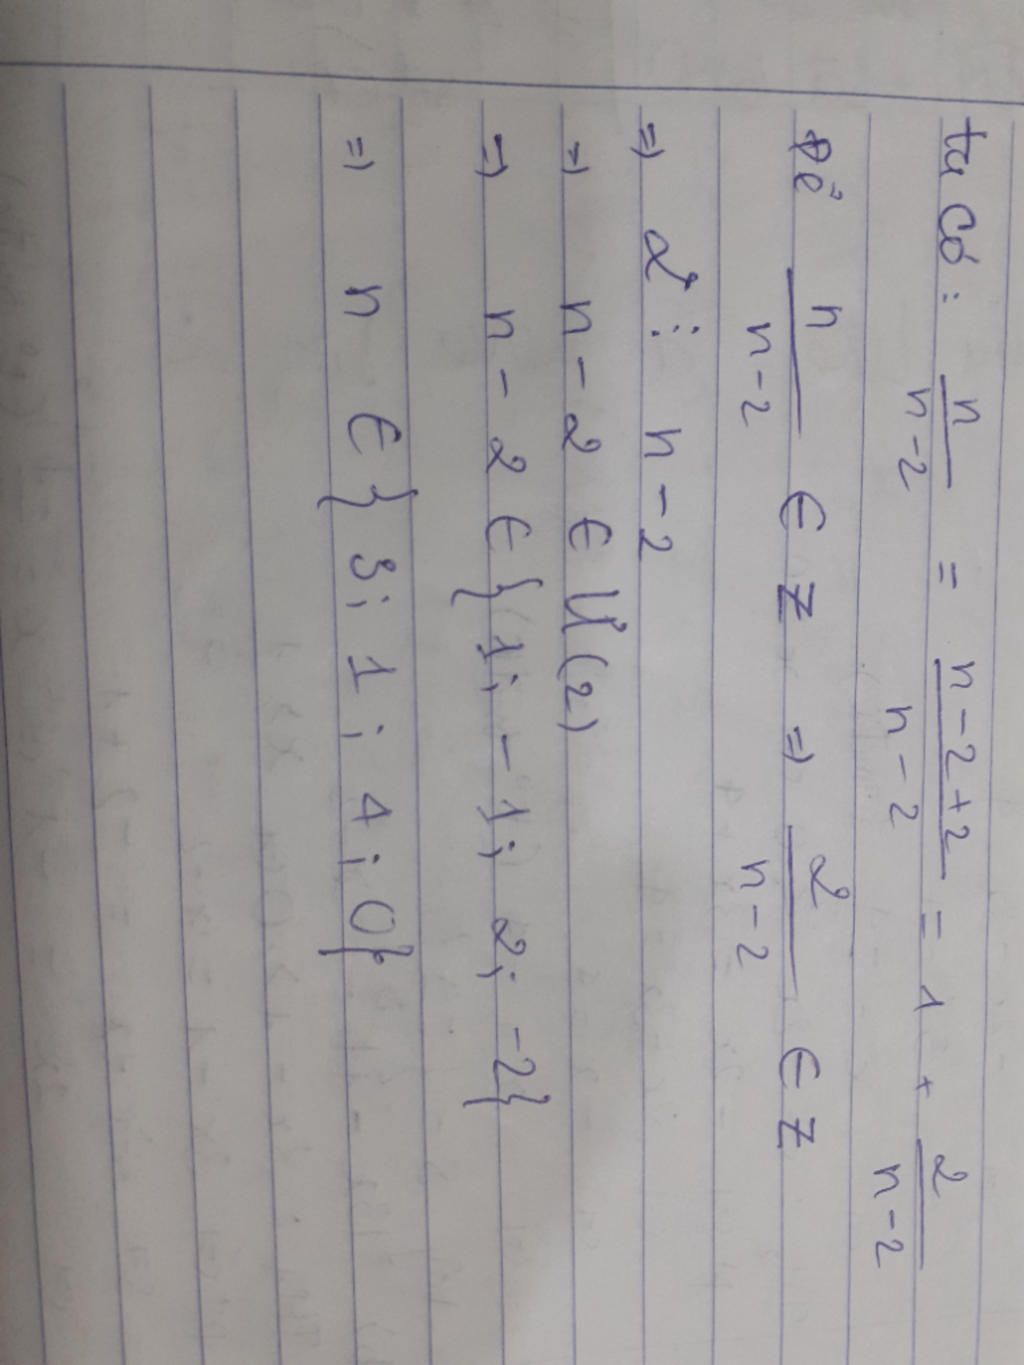 ta có: n/n-2 = n-2+2/n-2 = 1 + 2/n-2
Để n/n-2 ∈ Z => 2/n-2 ∈ Z
=> 2 ⋮ n-2
=> n-2 ∈ Ư(2)
=> n-2 ∈ {1; -1; 2; -2}
=> n ∈ {3; 1; 4; 0}